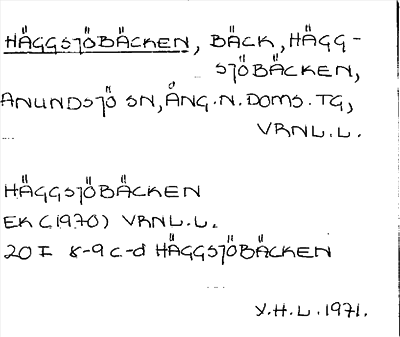 HÄGGSJÖBÄCKEN, BÄCK, HÄGG-
SJÖBÄCKEN,
ANUNDSJÖ SN, ÅNG. N. DOMS. TG,
VRNL. L.
HÄGGSJÖBÄCKEN
EK (1970) VRNL. L.
20 I 8-9 c-d HÄGGSJÖBÄCKEN
Y. H. L. 1971.